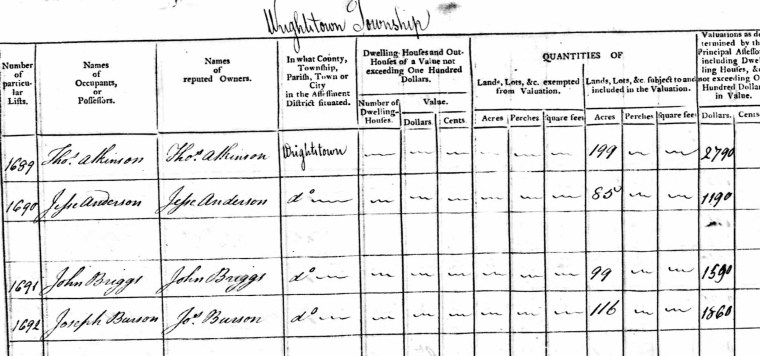 Wrightstown Township
Number of particular Lists.
Names of Occupants, or Possessors.
Names of reputed Owners.
In what County, Township, Parish, Town or City in the Assessment District situated.
Dwelling-Houses and Out-Houses of a Value not exceeding One Hundred Dollars.
Number of Dwelling-Houses.
Value.
Dollars. Cents.
QUANTITIES OF
Lands, Lots, &c. exempted from Valuation.
Acres Perches Square feet
Lands, Lots, &c. subject to and included in the Valuation.
Acres Perches Square feet
Valuations as determined by the Principal Assessor including Dwelling Houses, &c not exceeding One Hundred Dollars in Value.
Dollars. Cents
1689 Thos. Atkinson Thos. Atkinson Wrightstown — — — — — — 199 — — 2790
1690 Jesse Anderson Jesse Anderson do — — — — — — — 85 — — 1190
1691 John Briggs John Briggs do — — — — — — — 99 — — 1590
1692 Joseph Burson Jos. Burson do — — — — — — — 116 — — 1860